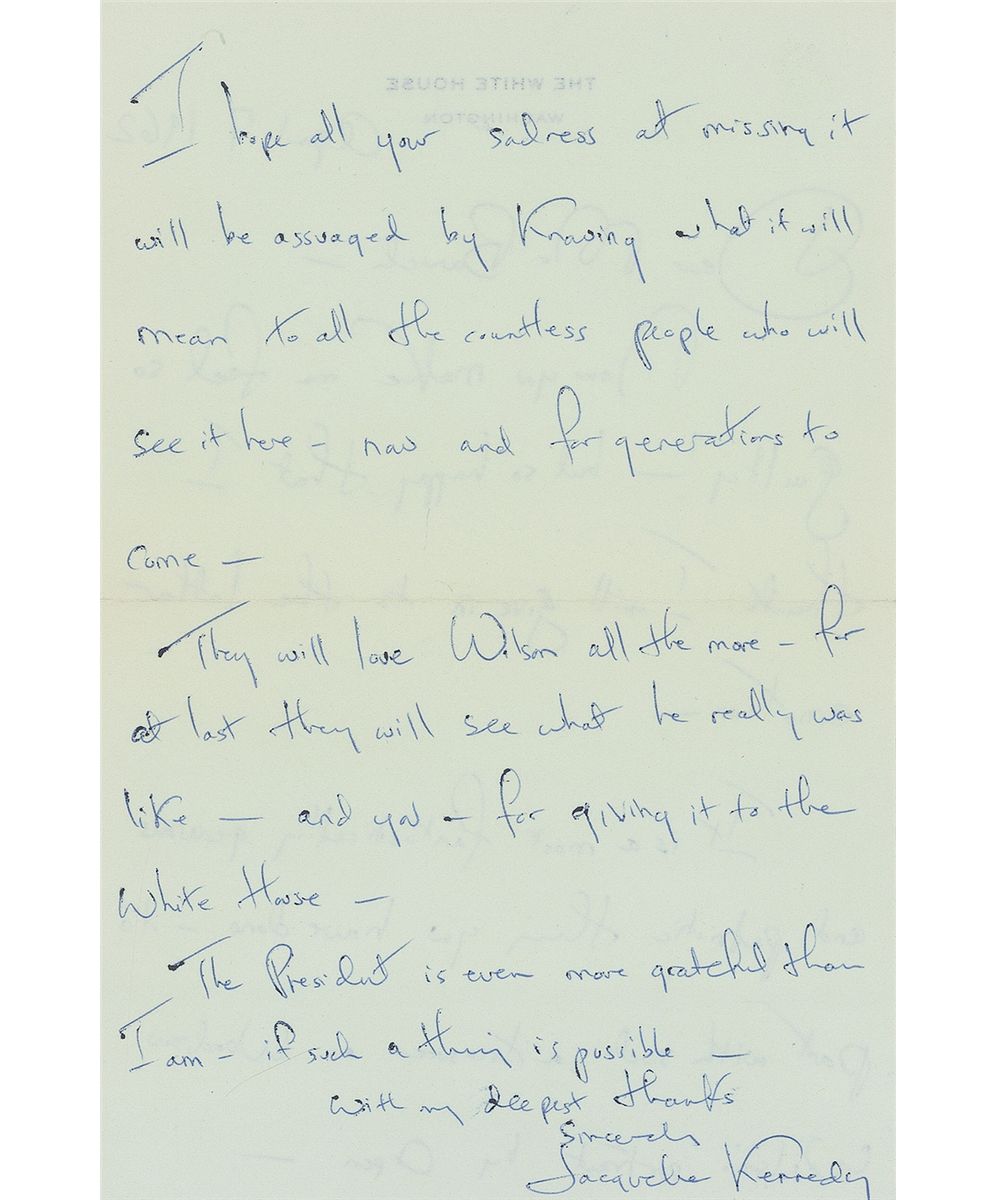 THE WHITE HOUSE
WASHINGTON
I hope all your sadness at missing it
will be assuaged by Knowing what it will
mean to all the countless people who will
see it here – now and for generations to
come —
They will love Wilson all the more – for
at last they will see what he really was
like — and you – for giving it to the
White House —
The President is even more grateful than
I am – if such a thing is possible —
with my deepest thanks
Sincerely
Jacqueline Kennedy